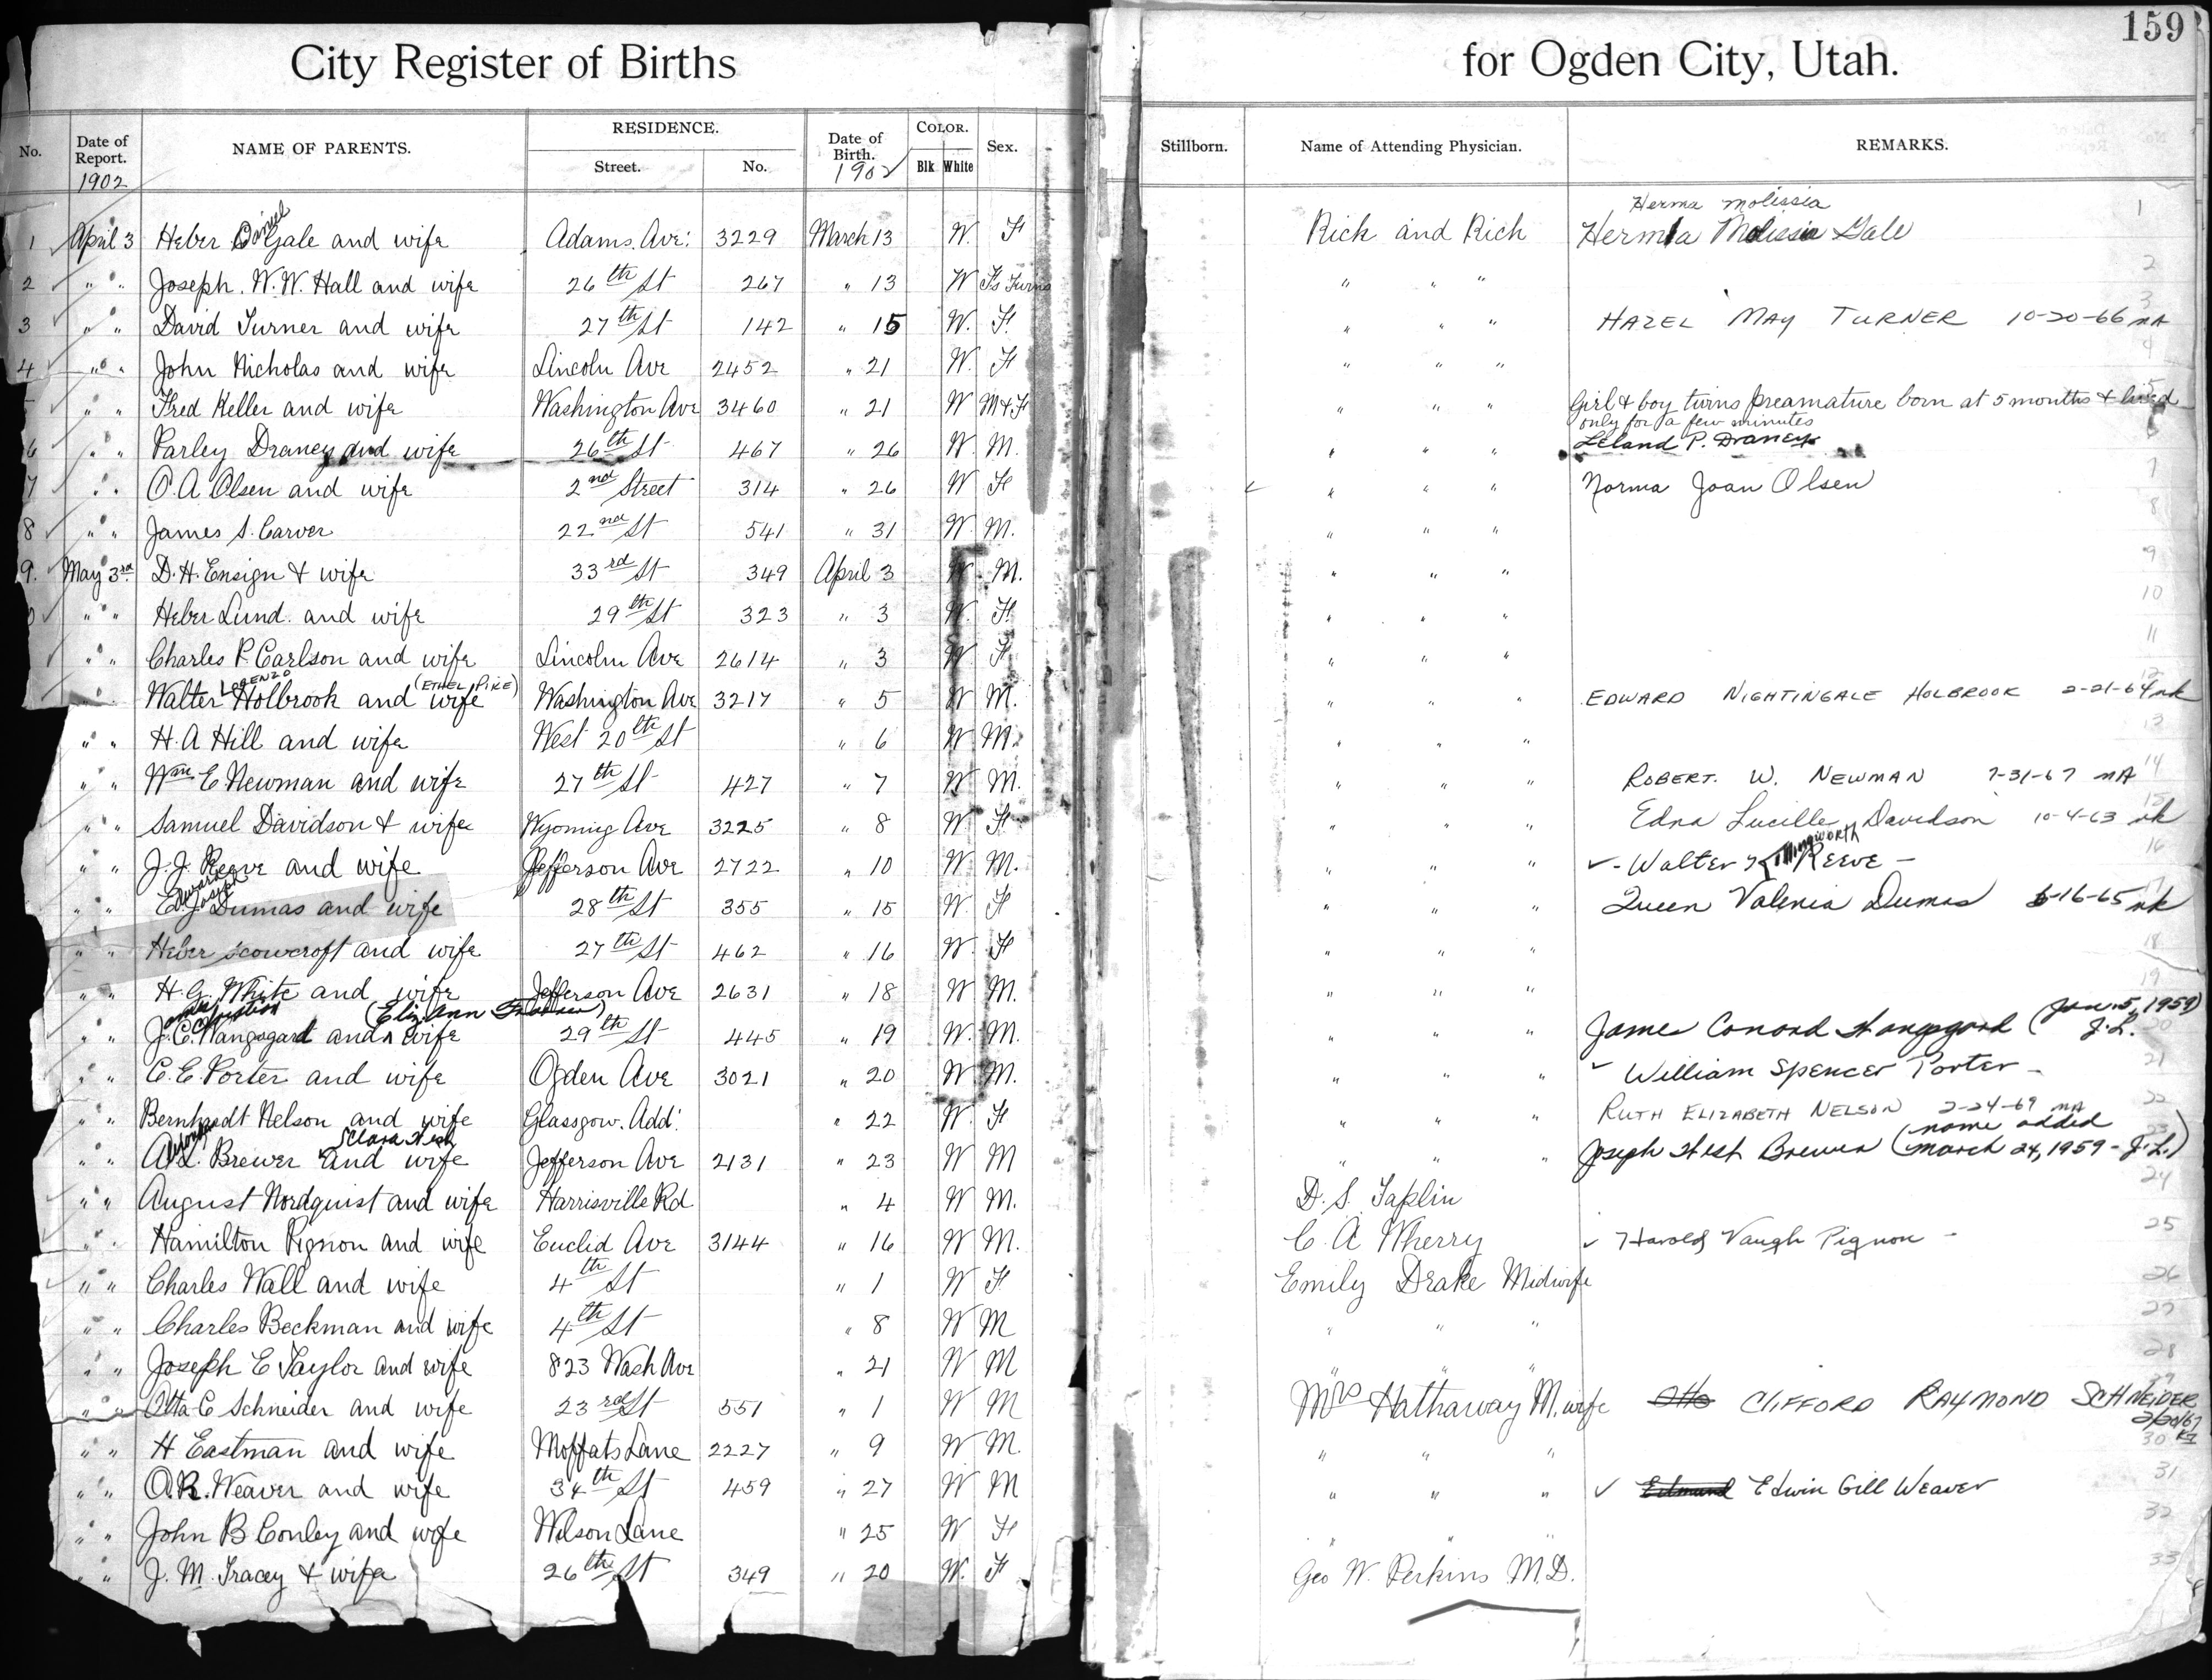 159
City Register of Births for Ogden City, Utah.
No. Date of Report. 1902 NAME OF PARENTS. RESIDENCE. Street. No. Date of Birth. 1902 COLOR. Blk White Sex. Stillborn. Name of Attending Physician. REMARKS.
Herma Molissia
1 April 3 Heber Daniel Gale and wife Adams. Ave: 3229 March 13 W. F Rich and Rich Hermla Molissia Gale 1
2 " " Joseph. W. W. Hall and wife 26th St 267 " 13 W Fs Twins " " " 2
3 " " David Turner and wife 27th St 142 " 15 W. F. " " " HAZEL MAY TURNER 10-20-66 MA 3
4 " " John Nicholas and wife Lincoln Ave 2452 " 21 W. F " " " 4
" " Fred Keller and wife Washington Ave 3460 " 21 W M & F " " " Girl & boy twins preamature born at 5 months & lived 5
only for a few minutes
6 " " Parley Draney and wife 26th St 467 " 26 W. M. " " " Leland P. Draney
7 " " O. A Olsen and wife 2nd Street 314 " 26 W F " " " Norma Joan Olsen 7
8 " " James S. Carver 22nd St 541 " 31 W. M. " " " 8
9. May 3rd D. H. Ensign & wife 33rd St 349 April 3 W. M. " " " 9
0 " " Heber Lund. and wife 29th St 323 " 3 W. F. " " " 10
" " Charles P. Carlson and wife Lincoln Ave 2614 " 3 W. F " " " 11
LORENZO (ETHEL PIKE)
" Walter Holbrook and wife Washington Ave 3217 " 5 W M. " " " EDWARD NIGHTINGALE HOLBROOK 2-21-64 nk 12
" " H. A Hill and wife West 20th St " 6 W M. " " " 13
" " Wm E. Newman and wife 27th St 427 " 7 W M. " " " ROBERT. W. NEWMAN 7-31-67 MA 14
" " Samuel Davidson & wife Wyoming Ave 3225 " 8 W F " " " Edna Lucille Davidson 10-4-63 nk 15
" " J. J. Reeve and wife Jefferson Ave 2722 " 10 W. M. " " " Walter Killingworth REEVE - 16
Edward Joseph
" " E. J. Dumas and wife 28th St 355 " 15 W. F " " " Queen Valenia Dumas 6-16-65 nk 17
" " Heber Scowcroft and wife 27th St 462 " 16 W. F " " " 18
" " H. G. White and wife Jefferson Ave 2631 " 18 W M. " " " 19
James Christian (Eliz. Ann) (Jan. 5, 1959)
" " J. C. Wangsgard and wife 29th St 445 " 19 W. M. " " " James Conord Wangsgard J. L. 20
" " C. E. Porter and wife Ogden Ave 3021 " 20 W M. " " " William Spencer Porter - 21
" " Bernhardt Nelson and wife Glasgow. Add. " 22 W. F " " " RUTH ELIZABETH NELSON 2-24-69 MA 22
Clara Hest name added
" " A. L. Brewer and wife Jefferson Ave 2131 " 23 W M " " " Joseph Hest Brewer (March 24, 1959 - J. L.) 23
" " August Nordquist and wife Harrisville Rd " 4 W M. D. S. Taplin 24
" " Hamilton Pignon and wife Euclid Ave 3144 " 16 W M. C. A Wherry Harold Vaugh Pignon - 25
" " Charles Wall and wife 4th St " 1 W F Emily Drake Midwife 26
" " Charles Beckman and wife 4th St " 8 W M " " " 27
" " Joseph E Taylor and wife 823 Wash Ave " 21 W M " " " 28
" " Otta C Schneider and wife 23rd St 551 " 1 W M Mrs Hathaway M. wife Otto CLIFFORD RAYMOND SCHNEIDER 2/20/67
" " H Eastman and wife Moffats Lane 2227 " 9 W. M. " " " 30
" " O. R. Weaver and wife 34th St 459 " 27 W M " " " Edmund Edwin Gill Weaver 31
" " John B Conley and wife Wilson Lane " 25 W F " " " 32
" " J. M. Tracey & wife 26th St 349 " 20 W. F Geo W. Perkins M.D. 33